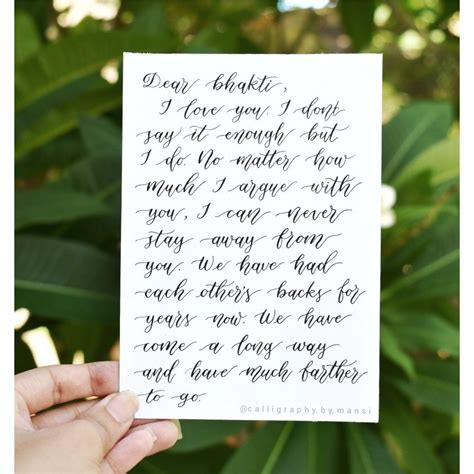 Dear bhakti,
I love you. I dont
say it enough but
I do. No matter how
much I argue with
you, I can never
stay away from
you. We have had
each other's backs for
years now. We have
come a long way
and have much farther
to go.
@calligraphy.by.mansi